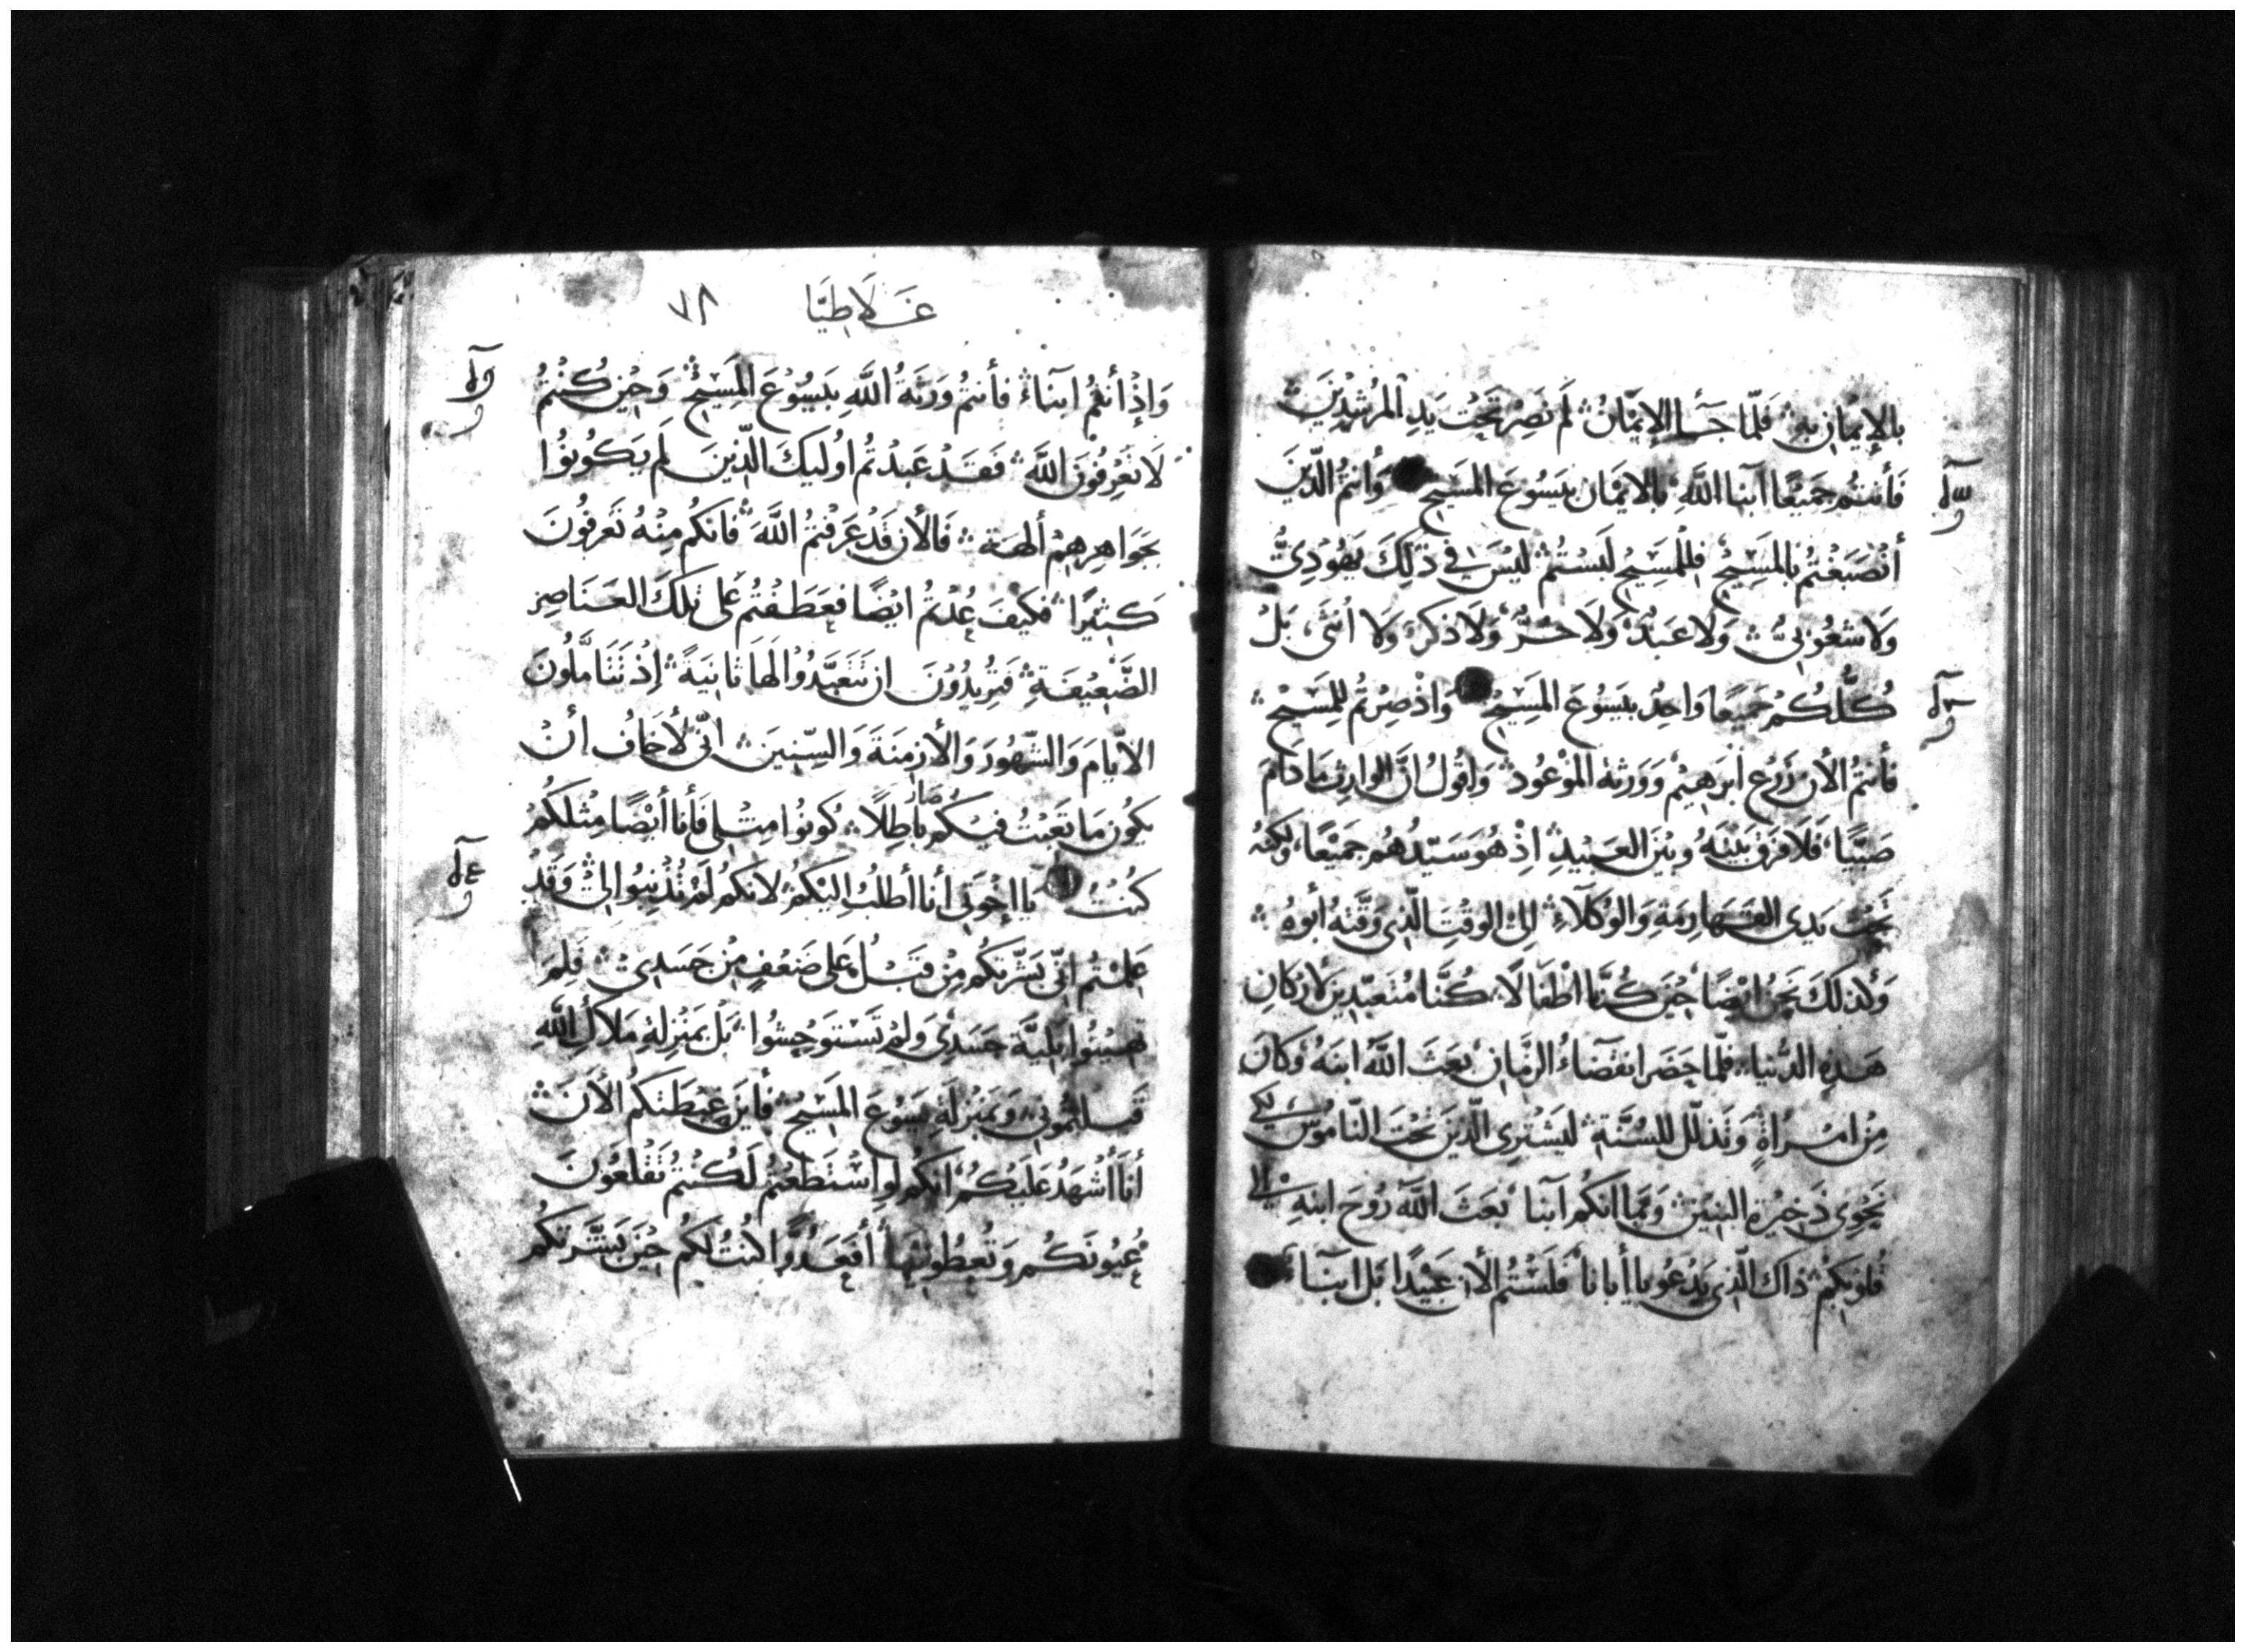 بالإِيمَانِ بِهِ فَلَمَّا جَآءَ الإِيمَانُ لَمْ نَصِرْ تَحْتَ يَدِ المُرْشِدِيْنَ
فَأَنْتُم جَمِيْعًا أبنا اللَّهِ بالايمَان بيَسُوعَ المَسِيحِ وَأَنتُم الَّذِينَ
أنْصَبَغْتُم بالمَسِيحِ فلِلْمَسِيحِ لَبِسْتُمْ لَيْسَ في ذلِكَ يَهُوْدِيُّ
وَلا شعُوبيُّ وَلاَ عَبدٌ وَلاَ حُرٌّ وَلاَ ذكَر وَلا أنثَى بَلْ
كُلُّكُم جَمِيعًا وَاحِدٌ بيَسُوعَ المَسِيحِ وَاذْ صِرْتُم لِلمَسِيْحِ
فأنتمُ الأن زَرْع ابرَهِيمْ وَوَرَثة المَوْعُود وَاقُولُ انَّ الوارِث مَا دَامَ
صَبِيًّا فَلَا فَرَق بَيْنَهُ وبَيْنَ العَبيْدِ اذْ هُوَ سَيّدُهُم جَمِيْعًا وَلكنهُ
تَحْتَ يَدي القَهَارِمَةِ وَالوُكَلَاءِ الىَ الوقْتِ الَّذِي وَقَّتهُ أبُوهُ
وَلذلكَ نَحنُ ايْضًا حِيْنَ كُنَّا اطْفَالًا كُنَّا مُتَعَبّدِينَ لأرْكَانِ
هَذِهِ الدُّنيا فلَمَّا حَضَرَ انقضَاءُ الزَّمَانِ بَعَثَ اللَّهُ ابنَهُ وَكانَ
مِنِ امْرَاةٍ وَتذَلّل للسُنَّةِ ليَشْتَرِي الَّذِينَ تَحْتَ النَّامُوْسِ لِكي
نَحْوِي ذَخِيْرَة البَنِيْنَ وَبمَا انكُم أبنا بَعَثَ اللَّهُ رُوْحَ ابنِهِ الى
قُلوْبِكُم ذاكَ الَّذِي يَدْعُو يا أبانا فَلَسْتُم الأن عَبِيْدًا بَل ابنَاءَ
غَلَاطِيَّا ٧٨
وَإِذْ أَنتُم ابنَاءٌ فأَنتُم وَرَثَةُ اللَّهِ بيَسُوْعَ المَسِيْحِ وَحِيْنَ كُنْتُمْ
لَا تَعْرِفُوْنَ اللَّهَ فَقَد عَبَدْتُم اوُلَيِكَ الَّذِينَ لَم يَكُونُوا
بجَوَاهِرِهِمْ ألهة فَالأن قَدْ عَرَفتُمُ اللَّهَ فانكُم مِنْهُ تُعَرفُونَ
كَثِيْرًا فكَيْفَ عُدْتُم ايْضًا فعَطَفْتُم عَلَى تِلكَ العَنَاصِرِ
الضَّعِيْفَةِ فَتُرِيْدُوْنَ ان تَتَعَبَّدُوْا لهَا ثانيَةً إذْ تَتَأمَّلُونَ
الايَّامَ وَالشّهُورَ وَالأزمِنَةَ وَالسِّنِينَ انّي لأخَافُ أنْ
يكُون مَا تَعِبْتُ فيْكُم صَارَ باطِلًا كونُوا مِثلي فَأنا أيْضًا مِثْلكُمْ
كُنْتُ يَا إخْوَتي أنا أطلُبُ اليْكُم لانكُم لَمْ تُذْنِبُوا الىَّ وَقَدْ
عَلِمْتُم انّي بَشّرْتكُم مِنْ قَبْلُ عَلى ضَعْفٍ مِن جَسَدِي فلِمَ
تهينُوا بَلِيَّة جَسَدِي وَلَمْ تَسْتَوحِشُوا بَل بمَنْزِلَةِ مَلَاكِ اللَّهِ
قَبلتُمُوني وَبمَنْزِلَةِ يَسُوْعَ المَسِيحِ فأَيْنَ غِبْطَتكُم الأنَ
أنا أشْهَدُ عَلَيْكُم انكُم لوِ اسْتَطَعْتُم لَكُنْتُم تَقْلَعُونَ
عُيُونَكُم وَتُعْطُونِيهَا أفَعَدُوًّا كُنتُ لكُم حِيْنَ بَشَّرْتكُم